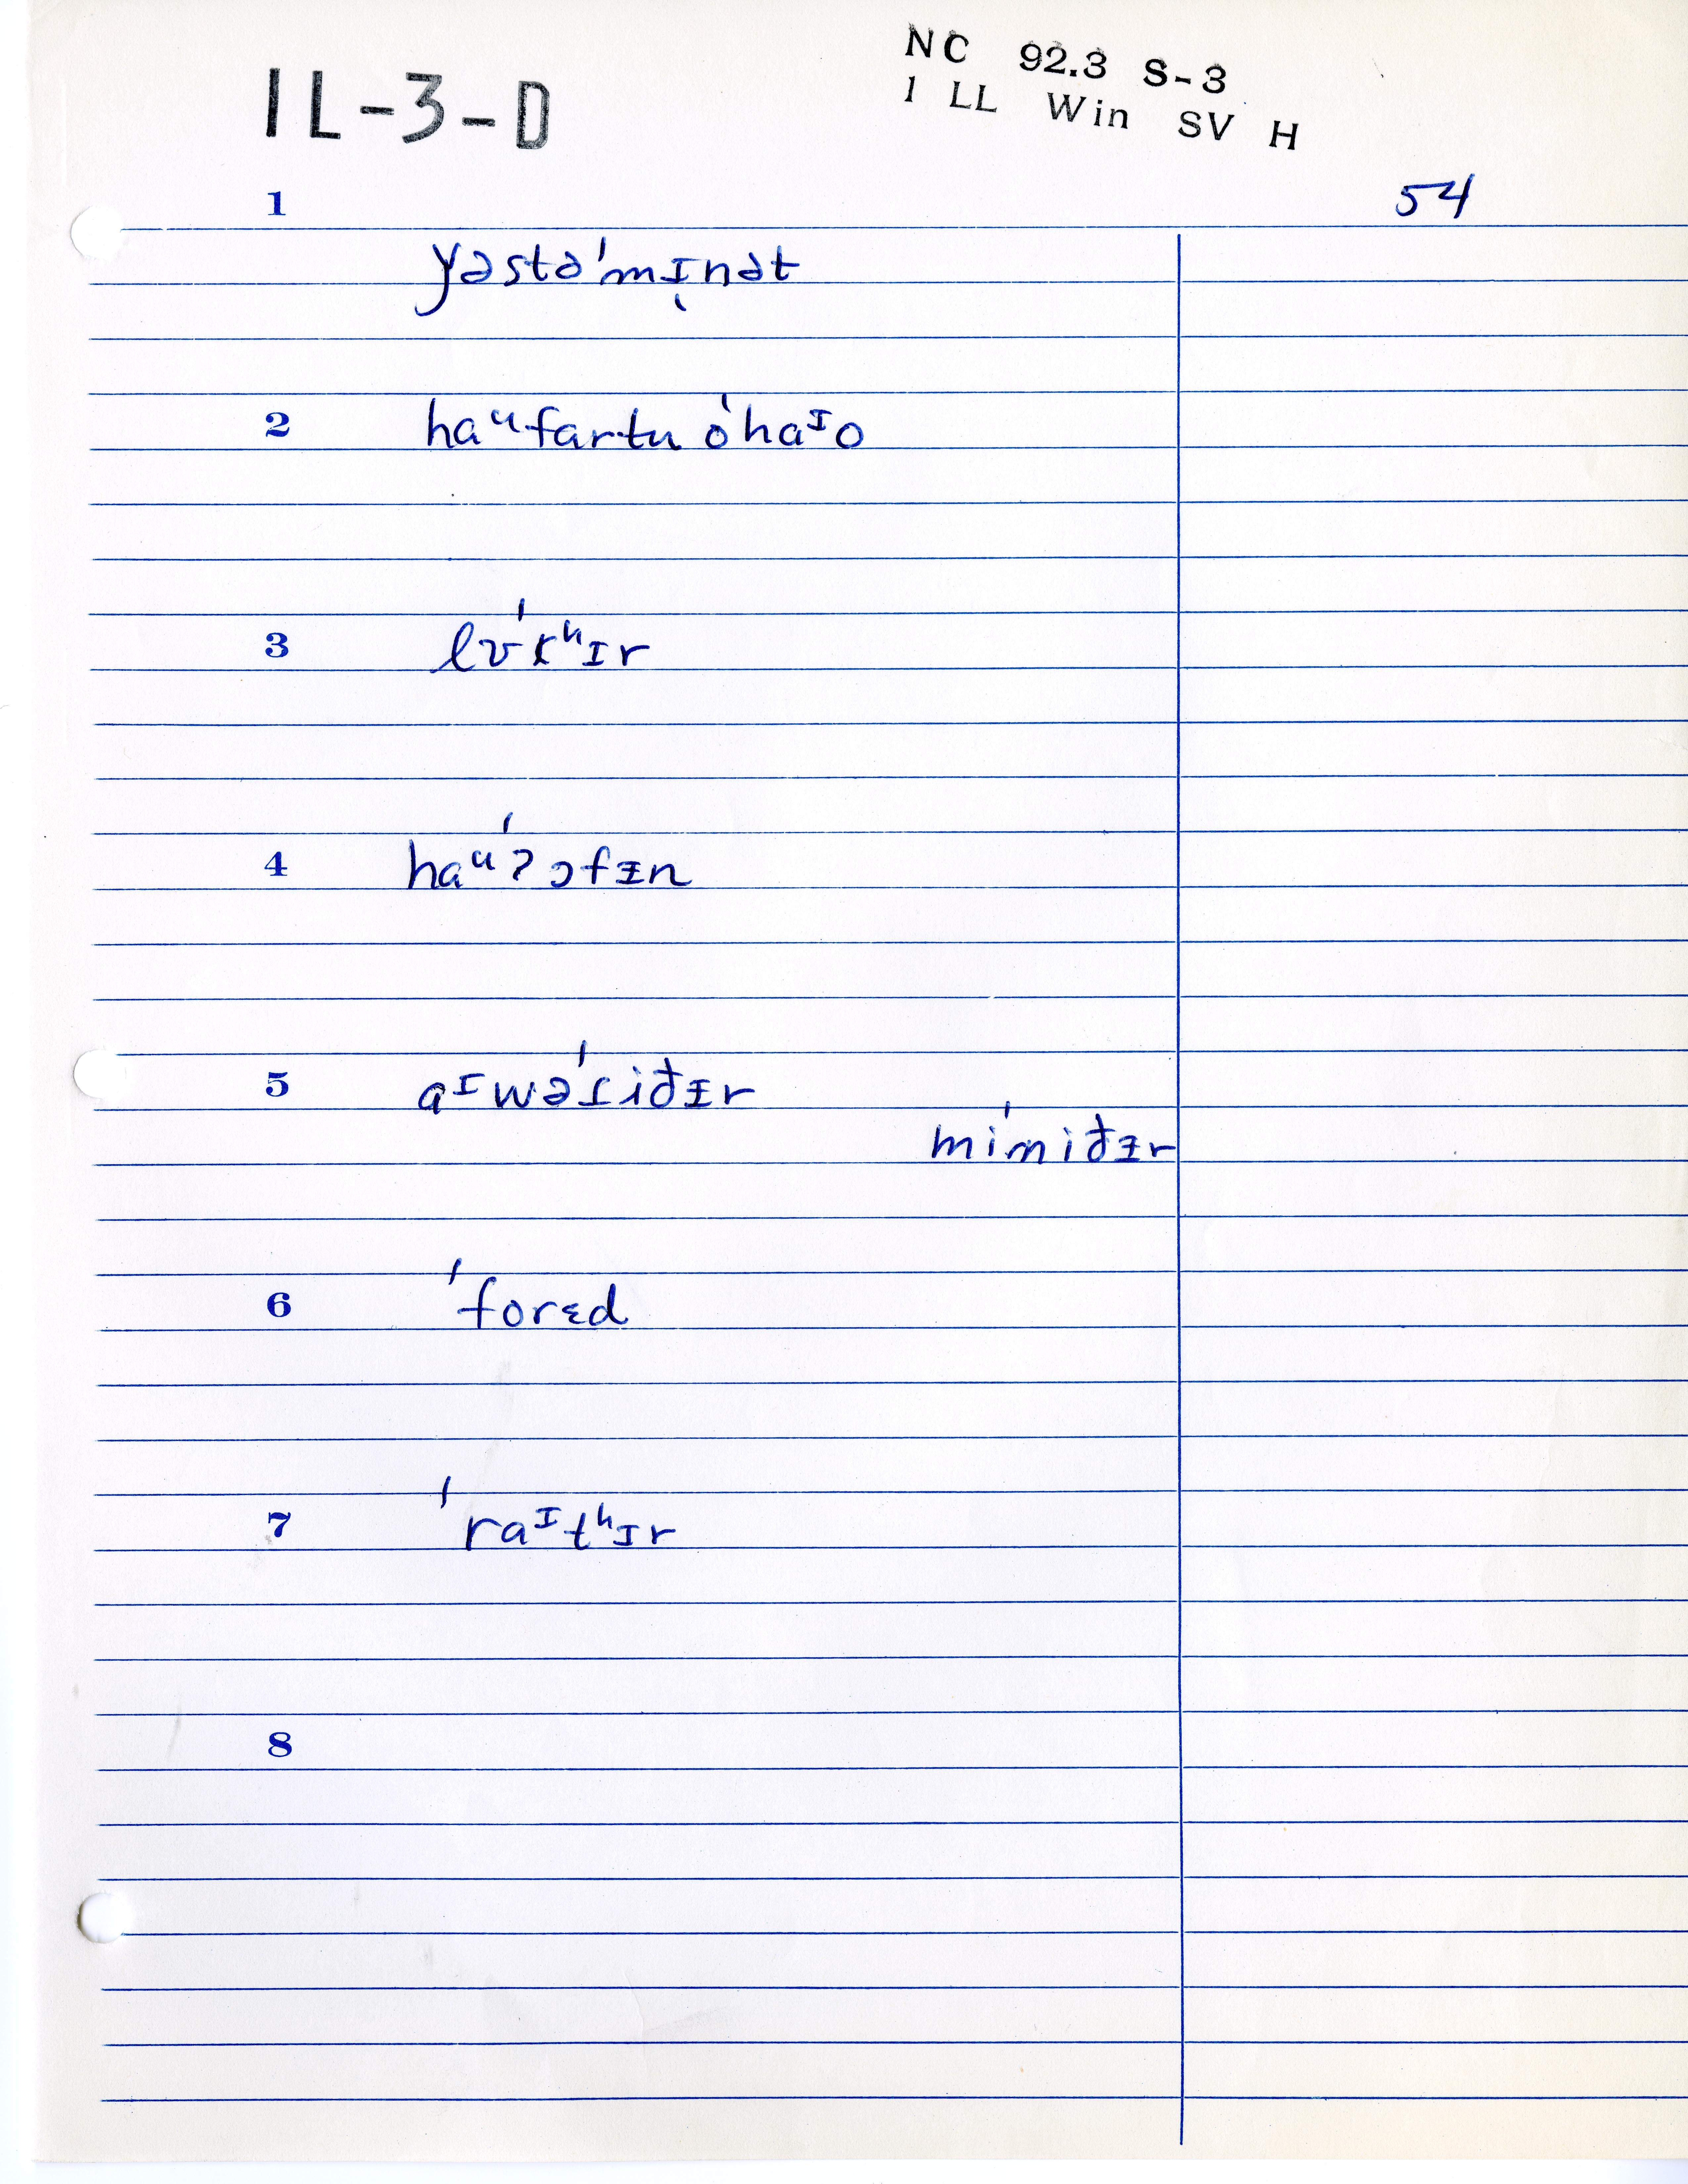 1L-3-D
NC 92.3 S-3
1 LL Win SV H
54
1
yəstə'mɪ̨nət
2 haᵘfartu ó'haᶦo
3 lʊ'kʰɪr
4 haᵘ'ʔɔfᵻn
5 aᶦwə'ɾiðᵻr
mi'miðᵻr
6 'forɛd
7 'raᶦtʰɪr
8